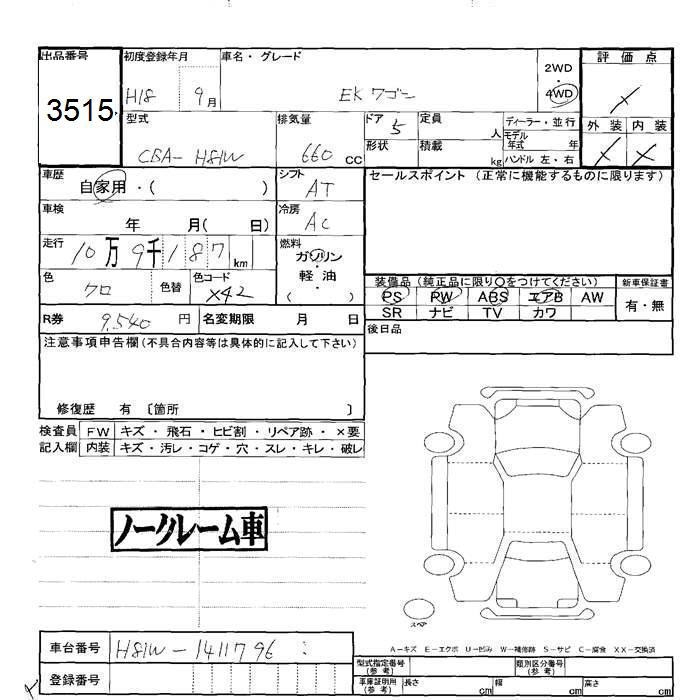 出品番号
3515
初度登録年月
H18 9月
車名・グレード
EK ワゴン
2WD
・
4WD
評価点
型式
CBA- H81W
排気量
660 CC
ドア 5
形状
定員 人
積載 kg
ディーラー・並行
モデル年式 年
ハンドル 左・右
外装 内装
車歴
自家用・( )
シフト
AT
セールスポイント (正常に機能するものに限ります)
車検
年 月( 日)
冷房
AC
走行
10万9千187km
燃料
ガソリン
・
軽・油
( )
色
クロ
色替
色コード
X42
装備品 (純正品に限り○をつけてください)
新車保証書
PS PW ABS エアB AW
有・無
SR ナビ TV カワ
R券 9,540 円
名変期限 月 日
後日品
注意事項申告欄(不具合内容等は具体的に記入して下さい)
修復歴 有 〔箇所 〕
検査員 FW キズ・飛石・ヒビ割・リペア跡・×要
記入欄 内装 キズ・汚レ・コゲ・穴・スレ・キレ・破レ
ノークレーム車
スペア
車台番号 H81W-1411796
登録番号
A-キズ E-エクボ U-凹み W-補修跡 S-サビ C-腐食 XX-交換済
型式指定番号(参考)
類別区分番号(参考)
車庫証明用(参考) 長さ cm 幅 cm 高さ cm